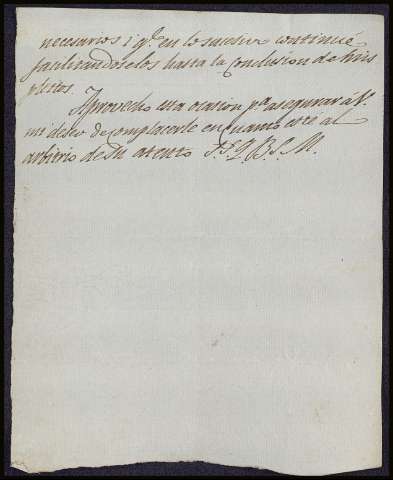 necesarios i q.e en lo sucesivo continué
facilitandoselos hasta la Conclusion de mis
pleitos.
Aprovecho esta ocasion p.a asegurar á V.
mi deseo de complacerle en quanto este al
arbitrio de Su atento S.S.Q.B.S.M.